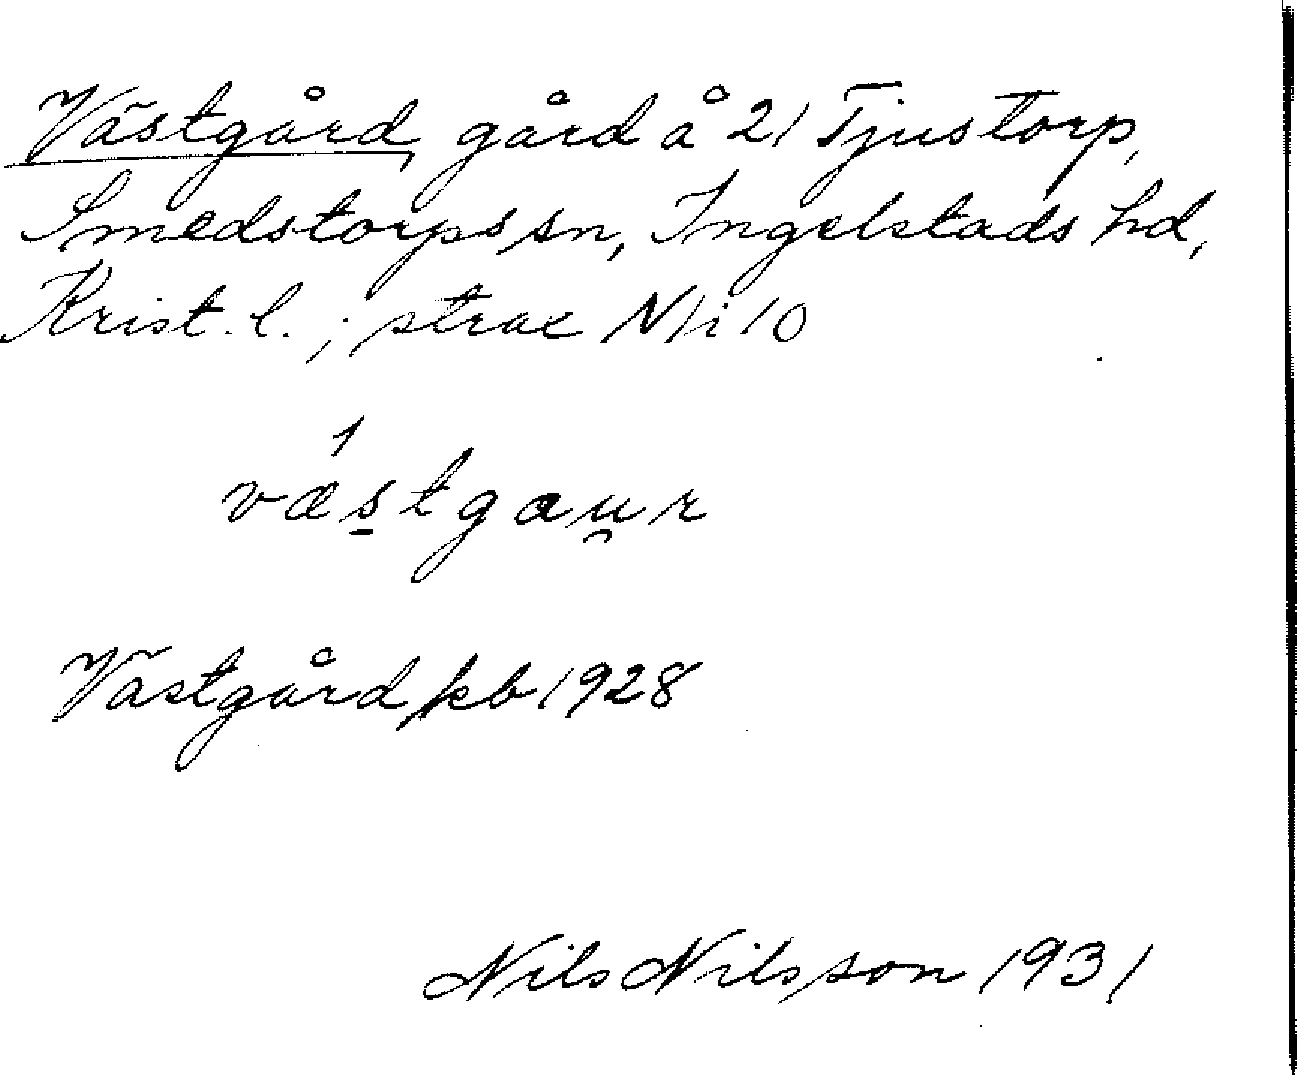 Västgård, gård å 21 Tjustorp,
Smedstorps sn, Ingelstads hd,
Krist. l.; strax N/i 10
væ̀s̱tgau̯r
Västgård, kb 1928
Nils Nilsson 1931